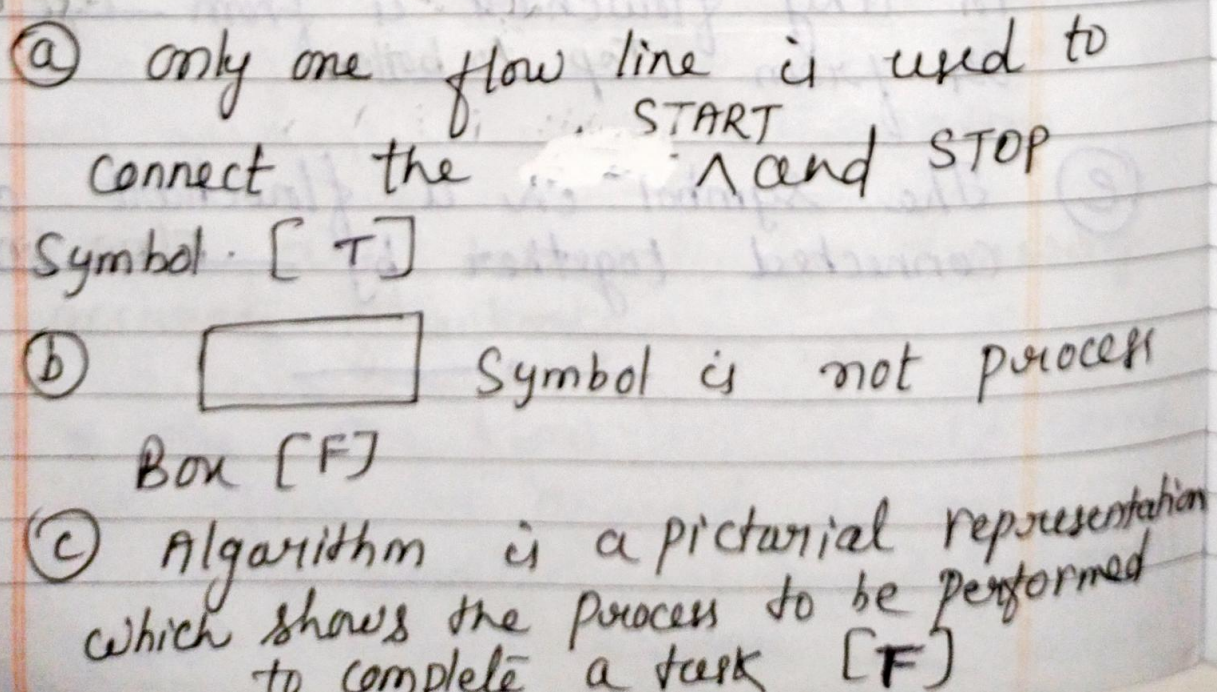 ⓐ only one flow line is used to
START
connect the ^ and STOP
Symbol. [T]
ⓑ Symbol is not process
Box [F]
ⓒ Algarithm is a pictarial representation
which shows the process to be performed
to complete a task [F]